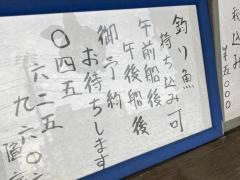 釣り魚
持ち込み可
午前船後
午後船後
御予約
お待ちします
〇四五
六二五